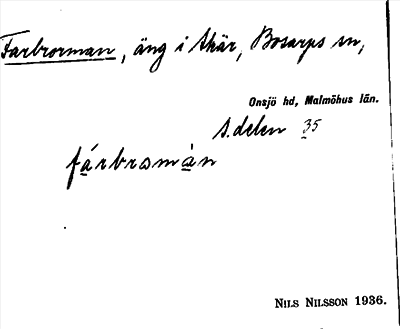 Farbrorman, äng i Skär, Bosarps sn,
Onsjö hd, Malmöhus län.
S. delen 35
fárbrɷmàn
NILS NILSSON 1936.